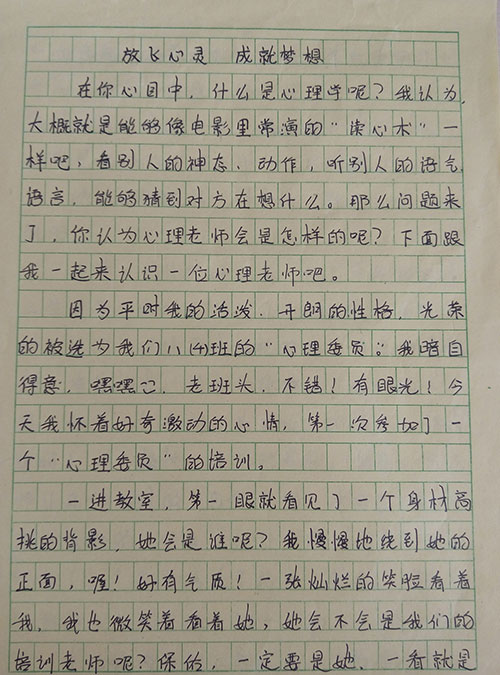 放飞心灵 成就梦想
在你心目中，什么是心理学呢？我认为，
大概就是能够像电影里常演的“读心术”一
样吧，看别人的神态、动作，听别人的语气、
语言，能够猜到对方在想什么。那么问题来
了，你认为心理老师会是怎样的呢？下面跟
我一起来认识一位心理老师吧。
因为平时我的活泼、开朗的性格，光荣
的被选为我们八(4)班的“心理委员”。我暗自
得意，嘿嘿，老班头，不错！有眼光！今
天我怀着好奇激动的心情，第一次参加了一
个“心理委员”的培训。
一进教室，第一眼就看见了一个身材高
挑的背影，她会是谁呢？我慢慢地绕到她的
正面，喔！好有气质！一张灿烂的笑脸看着
我，我也微笑着看着她，她会不会是我们的
培训老师呢？保佑，一定要是她，一看就是